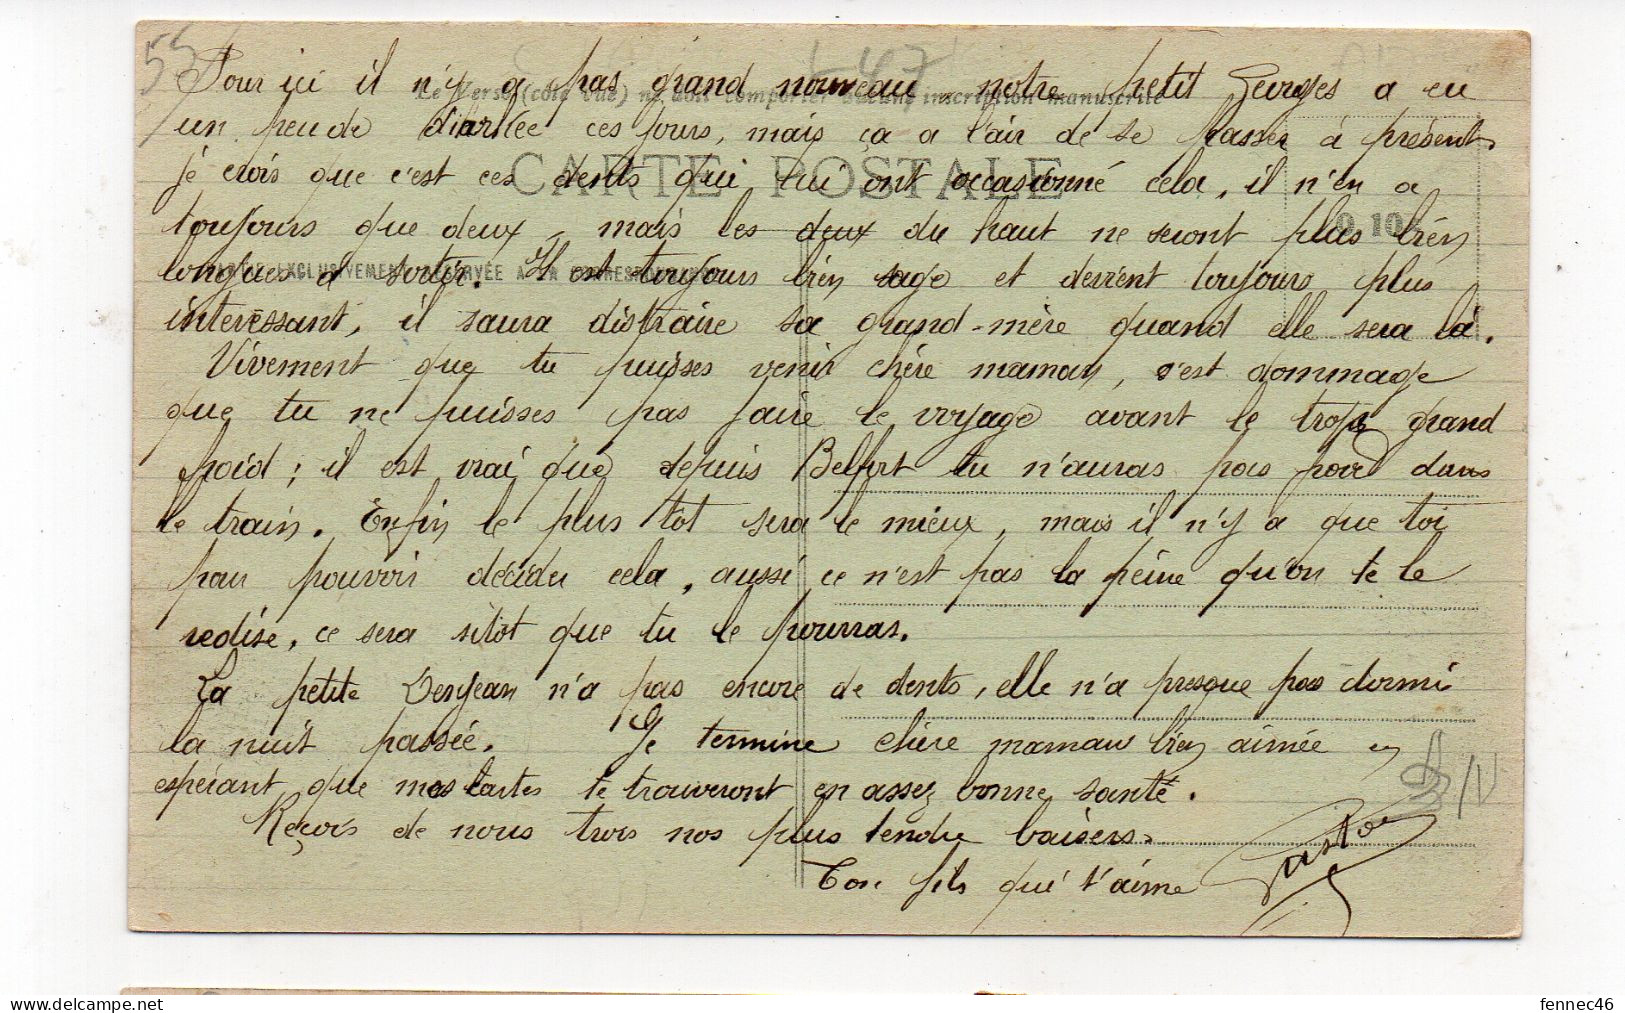 Pour ici il n'y a pas grand nouveau, notre petit Georges a eu
Le verso (côté vue) ne doit comporter aucune inscription manuscrite
un peu de diarrhée ces jours, mais ça a l'air de se passer à présent.
CARTE POSTALE
je crois que c'est ces dents qui lui ont occasionné cela, il n'en a
toujours que deux, mais les deux du haut ne seront plus bien
longues a sortir. Il est toujours bien sage et devient toujours plus
PARTIE EXCLUSIVEMENT RÉSERVÉE A LA CORRESPONDANCE
intéressant, il saura distraire sa grand-mère quand elle sera là.
Vivement que tu puisses venir chère maman, c'est dommage
que tu ne puisses pas faire le voyage avant le trop grand
froid ; il est vrai que depuis Belfort tu n'auras pas froid dans
le train. Enfin le plus tôt sera le mieux, mais il n'y a que toi
pour pouvoir décider cela, aussi ce n'est pas la peine qu'on te le
redise, ce sera sitôt que tu le pourras.
La petite n'a pas encore de dents, elle n'a presque pas dormi
la nuit passée. Je termine chère maman bien aimée en
espérant que mes cartes te trouveront en assez bonne santé.
Reçois de nous trois nos plus tendre baisers.
Ton fils qui t'aime
fennec46